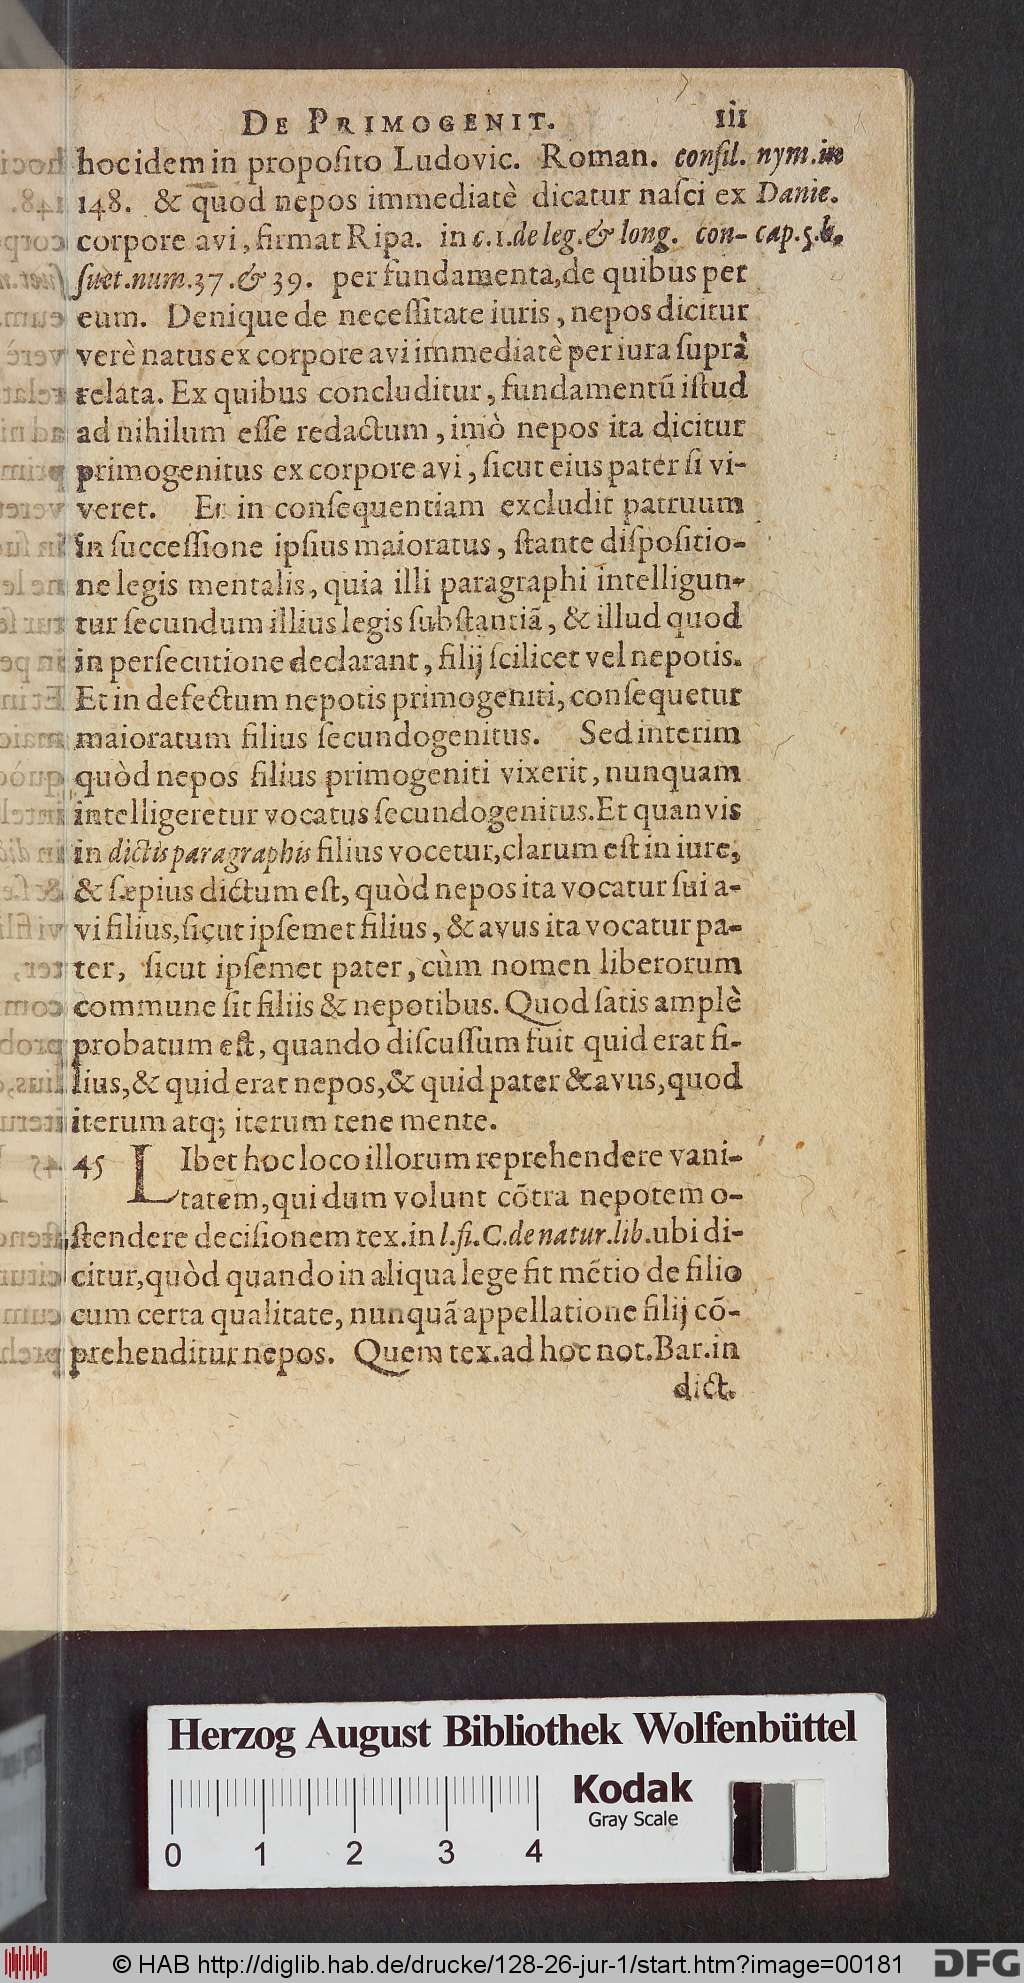 DE PRIMOGENIT. 111
hoc idem in propoſito Ludovic. Roman. conſil.
148. & quod nepos immediatè dicatur naſci ex
corpore avi, firmat Ripa. in c.1.de leg.& long. con-
ſuet.num.37.& 39. per fundamenta, de quibus per
eum. Denique de neceſſitate iuris, nepos dicitur
verè natus ex corpore avi immediatè per iura ſuprà
relata. Ex quibus concluditur, fundamentū iſtud
ad nihilum eſſe redactum, imò nepos ita dicitur
primogenitus ex corpore avi, ſicut eius pater ſi vi-
veret. Et in conſequentiam excludit patruum
in ſucceſſione ipſius maioratus, ſtante diſpoſitio-
ne legis mentalis, quia illi paragraphi intelligun-
tur ſecundum illius legis ſubſtantiā, & illud quod
in perſecutione declarant, filij ſcilicet vel nepotis.
Et in defectum nepotis primogeniti, conſequetur
maioratum filius ſecundogenitus. Sed interim
quòd nepos filius primogeniti vixerit, nunquam
intelligeretur vocatus ſecundogenitus. Et quanvis
in dictis paragraphis filius vocetur, clarum eſt in iure,
& ſæpius dictum eſt, quòd nepos ita vocatur ſui a-
vi filius, ſicut ipſemet filius, & avus ita vocatur pa-
ter, ſicut ipſemet pater, cùm nomen liberorum
commune ſit filiis & nepotibus. Quod ſatis amplè
probatum eſt, quando diſcuſſum fuit quid erat fi-
lius, & quid erat nepos, & quid pater & avus, quod
iterum atq; iterum tene mente.
45 LIbet hoc loco illorum reprehendere vani-
tatem, qui dum volunt cōtra nepotem o-
ſtendere deciſionem tex. in l.fi.C.de natur.lib. ubi di-
citur, quòd quando in aliqua lege fit mētio de filio
cum certa qualitate, nunquā appellatione filij cō-
prehenditur nepos. Quem tex. ad hoc not. Bar. in
dict.
nym. in
Danie.
cap.5.b.
Herzog August Bibliothek Wolfenbüttel
Kodak
Gray Scale
0 1 2 3 4
© HAB http://diglib.hab.de/drucke/128-26-jur-1/start.htm?image=00181
DFG